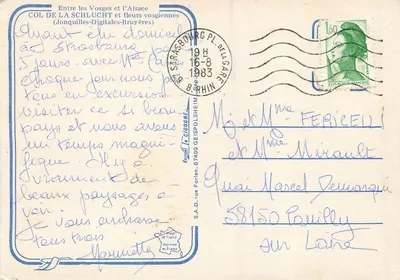 Entre les Vosges et l'Alsace
COL DE LA SCHLUCHT et fleurs vosgiennes
(Jonquilles-Digitales-Bruyères)
en domicile
à Strasbourg pour
5 jours. avec
chaque jour nous par
tons en excursion
visiter ce si beau
pays et nous avons
un temps magni
fique. Il y a
vraiment de
beaux paysages à
voir.
Je vous embrasse
tous trois
S.A.D. rue Forlen, 67400 GEISPOLSHEIM
67 STRASBOURG PL. DE LA GARE
19 H
16-8
1983
B. RHIN
1,60
M et Mme FERICELLI
et
Mme Mirault
Quai Marcel
58150 Pouilly
sur Loire